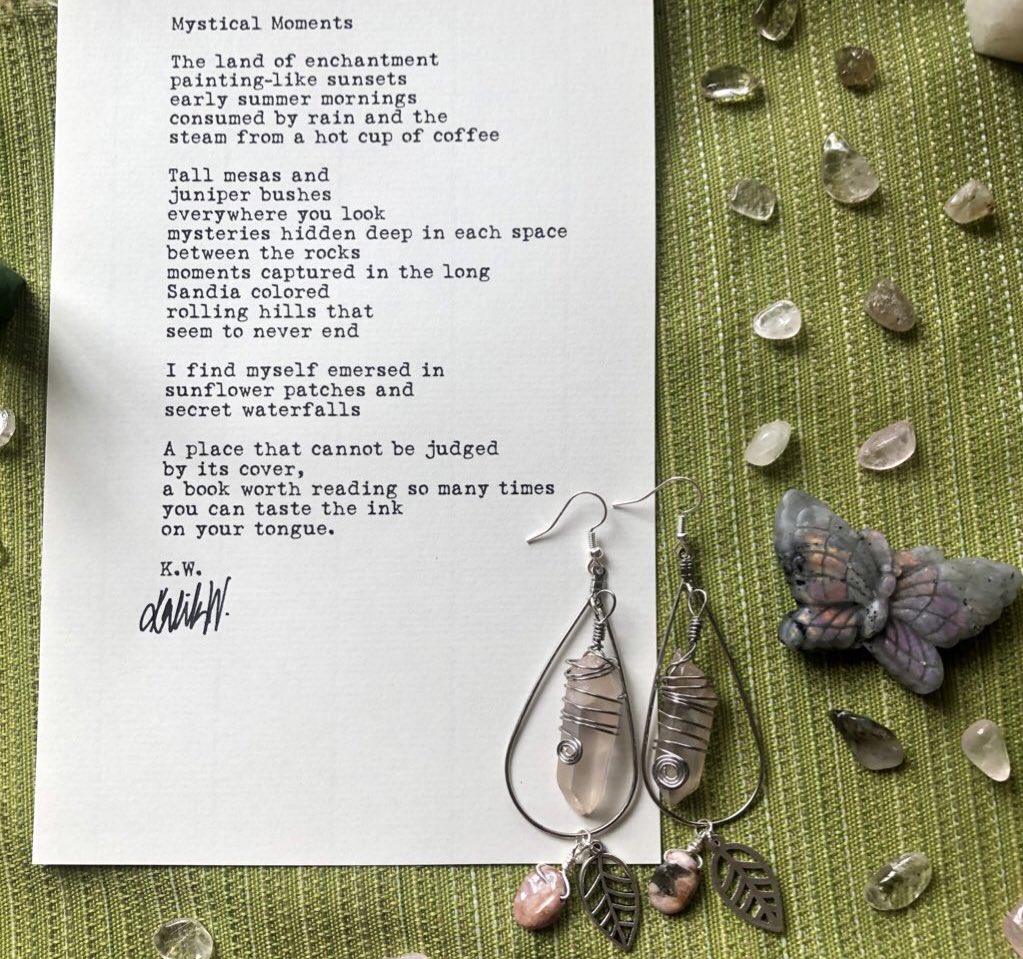 Mystical Moments
The land of enchantment
painting-like sunsets
early summer mornings
consumed by rain and the
steam from a hot cup of coffee
Tall mesas and
juniper bushes
everywhere you look
mysteries hidden deep in each space
between the rocks
moments captured in the long
Sandia colored
rolling hills that
seem to never end
I find myself emersed in
sunflower patches and
secret waterfalls
A place that cannot be judged
by its cover,
a book worth reading so many times
you can taste the ink
on your tongue.
K.W.